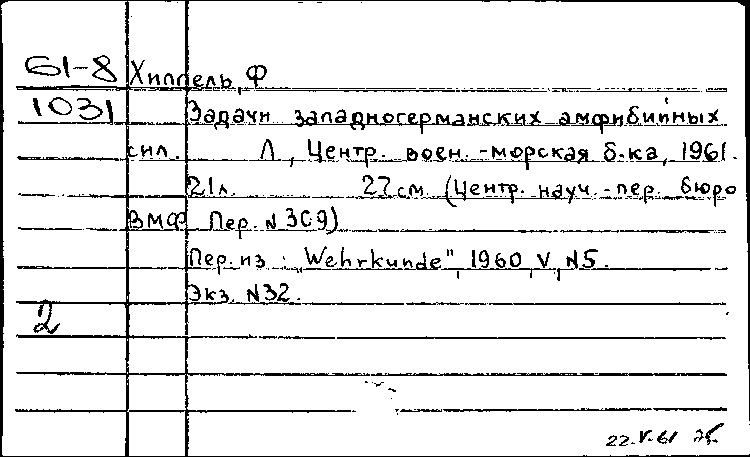 61-8 Хиппель, Ф
1031 Задачи западногерманских амфибийных
сил. Л, Центр. воен.-морская б-ка, 1961.
21л. 27см (Центр. науч.-пер. бюро
ВМФ Пер. N309)
Пер. из: „Wehrkunde", 1960, V, N5.
Экз. N32.
2
22.V-61